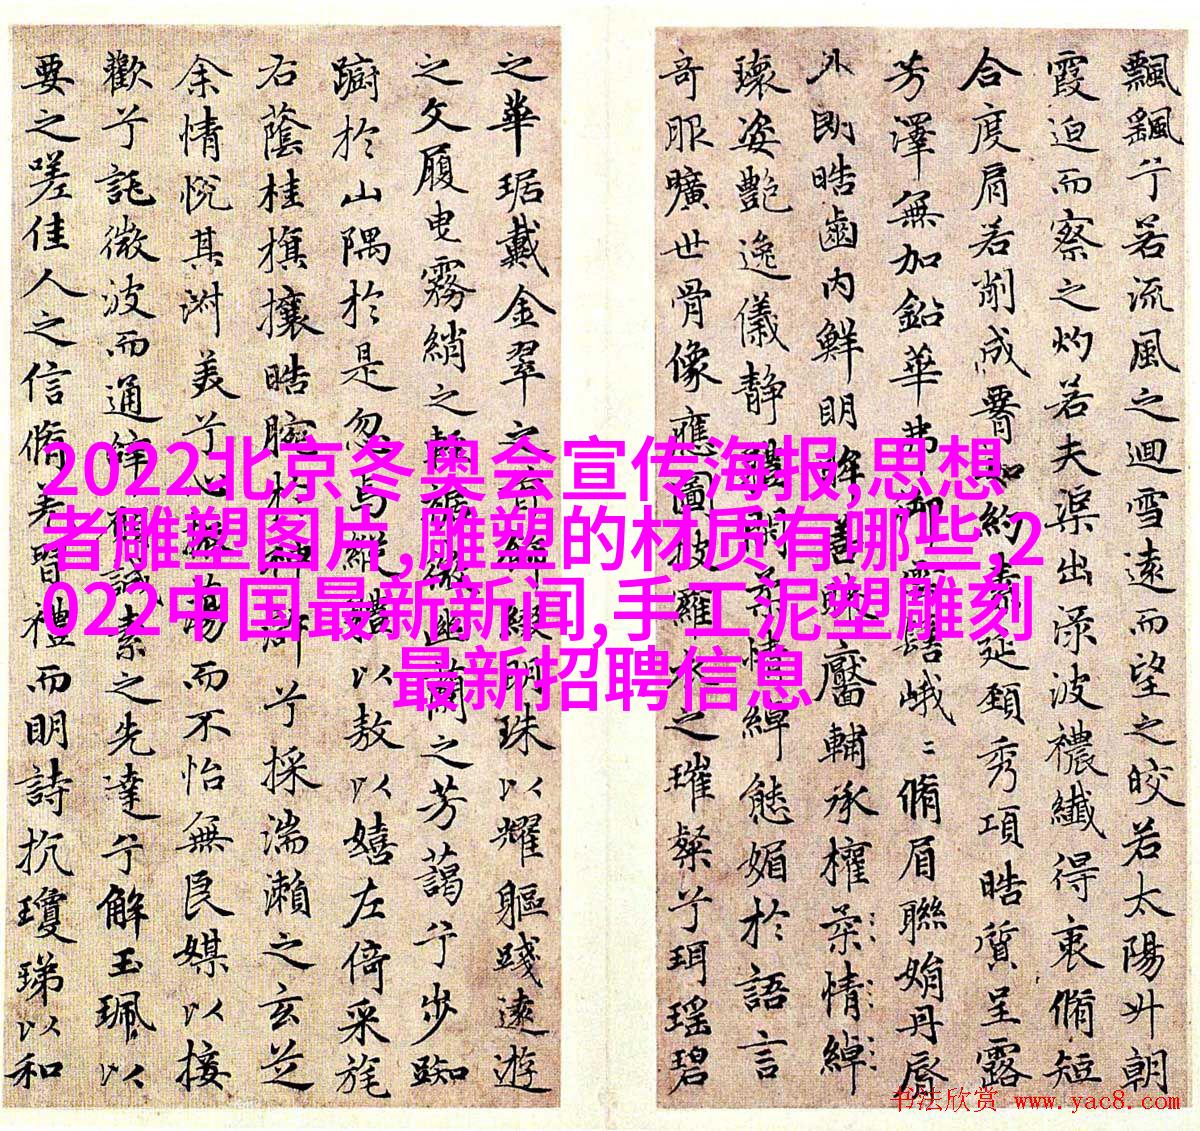 飄飖兮若流風之迴雪遠而望之皎若太陽升朝
霞迫而察之灼若夫渠出淥波襛纖得衷脩短
合度肩若削成腰如約素延頸秀項皓質呈露
芳澤無加鉛華弗御雲髻峨〻脩眉聯娟丹脣
外朗皓齒內鮮明眸善睞靨輔承權柔情綽
瓌姿艷逸儀靜體閑柔情綽態媚於語言
奇服曠世骨像應圖披羅衣之璀粲兮珥瑤碧
之華琚戴金翠之首飾綴明珠以耀軀踐遠遊
之文履曳霧綃之輕裾微幽蘭之芳藹兮步踟
躕於山隅於是忽焉縱體以敖以嬉左倚采旄
右蔭桂旗攘皓腕於神滸兮採湍瀨之玄芝
余情悅其淑美兮心振蕩而不怡無良媒以接
歡兮託微波而通辭願誠素之先達兮解玉珮以
要之嗟佳人之信脩羌習禮而明詩抗瓊珶以和
2022北京冬奥会宣传海报,思想
者雕塑图片,雕塑的材质有哪些,2
022中国最新新闻,手工泥塑雕刻
最新招聘信息
书法欣赏 www.yac8.com